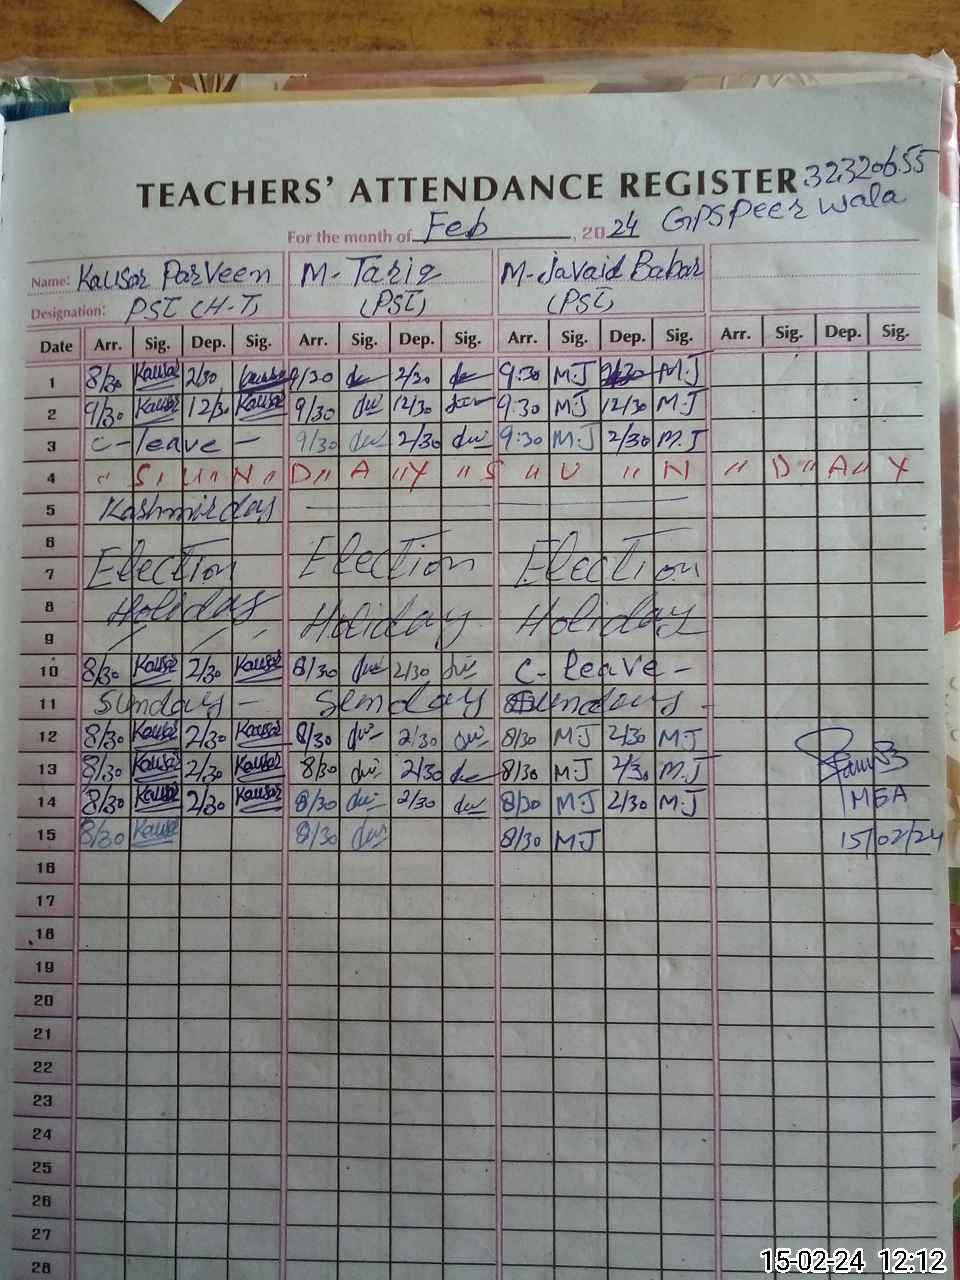 TEACHERS' ATTENDANCE REGISTER 32320655
For the month of Feb, 2024 GPS Peer wala
Name: Kausar Parveen M-Tariq M-Javaid Babar
Designation: PST (H-T) (PST) (PST)
Date Arr. Sig. Dep. Sig. Arr. Sig. Dep. Sig. Arr. Sig. Dep. Sig. Arr. Sig. Dep. Sig.
1 8/30 Kausar 2/30 Kausar 9/30 2/30 9:30 MJ 2/30 M.J
2 9/30 Kausar 12/30 Kausar 9/30 12/30 9:30 MJ 12/30 M.J
3 C-leave - 9/30 2/30 9:30 M.J 2/30 M.J
4 " S, U" N " D" A "Y " S " U " N " D" A" Y
5 Kashmir day
6
7 Election Election Election
8 Holiday Holiday Holiday
9
10 8/30 Kausar 2/30 Kausar 8/30 2/30 C-leave -
11 Sunday - Sunday Sunday -
12 8/30 Kausar 2/30 Kausar 8/30 2/30 8/30 MJ 2/30 MJ
13 8/30 Kausar 2/30 Kausar 8/30 2/30 8/30 M.J 2/30 M.J
14 8/30 Kausar 2/30 Kausar 8/30 2/30 8/30 MJ 2/30 M.J MEA
15 8/30 Kausar 8/30 8/30 MJ 15/02/24
16
17
18
19
20
21
22
23
24
25
26
27
28
15-02-24 12:12